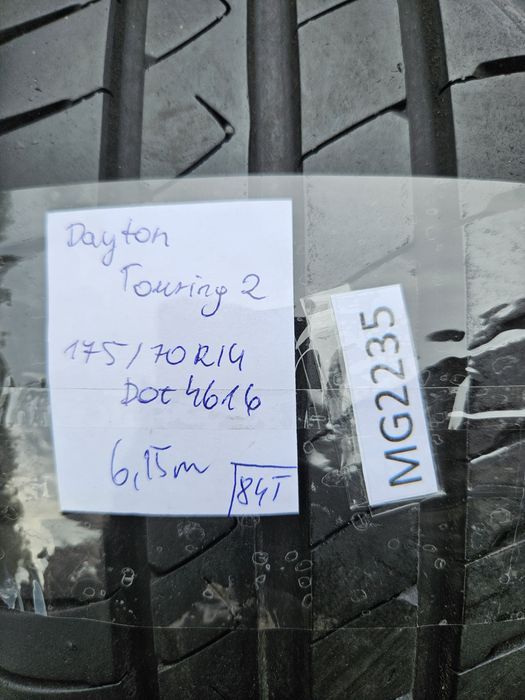 Dayton
Touring 2
175/70R14
Dot 4616
6,15m
84T
MG2235